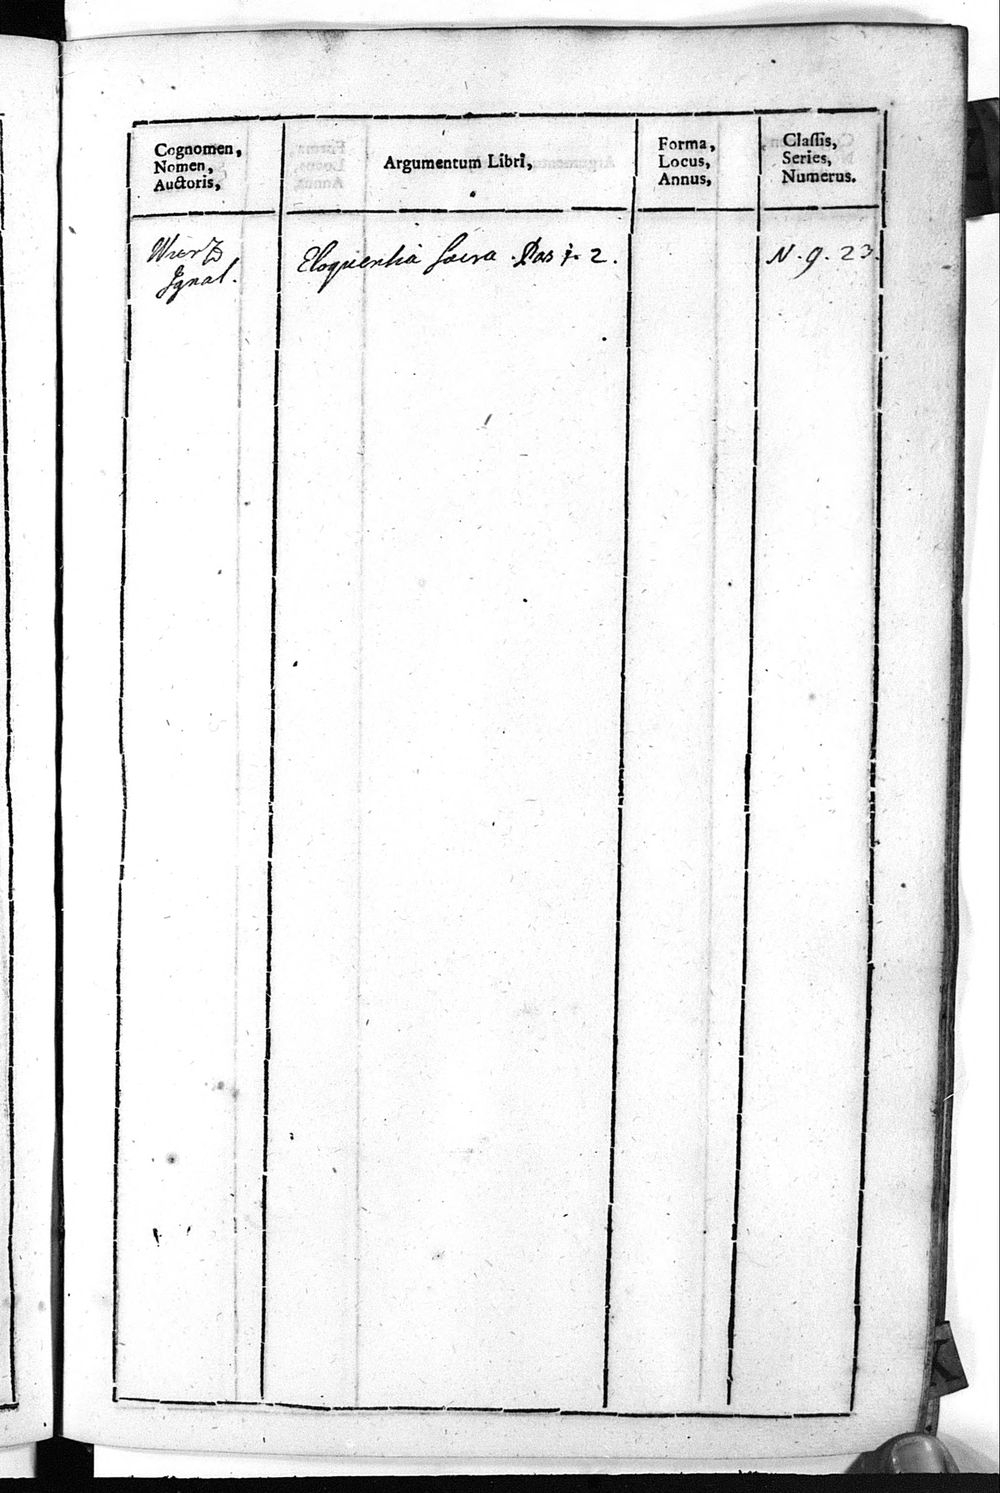 Cognomen,
Nomen,
Auctoris,
Argumentum Libri,
Forma,
Locus,
Annus,
Classis,
Series,
Numerus.
Wurz
Ignat.
Eloquentia sacra. Pars 1. 2.
N. 9. 23.
K